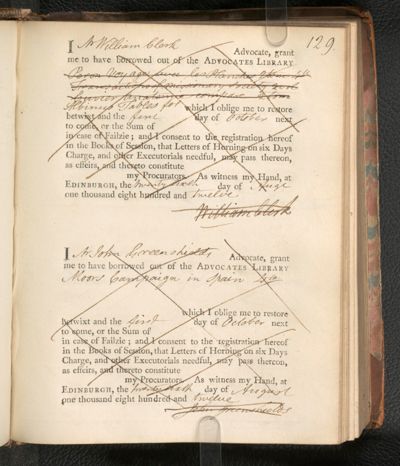 129
I Mr William Clerk Advocate, grant
me to have borrowed out of the ADVOCATES LIBRARY
Albinus Tables for which I oblige me to restore
betwixt and the first day of October next
to come, or the Sum of
in case of Failzie; and I consent to the registration hereof
in the Books of Session, that Letters of Horning on six Days
Charge, and other Executorials needful, may pass thereon,
as effeirs, and thereto constitute
my Procurators. As witness my Hand, at
EDINBURGH, the day of
one thousand eight hundred and twelve
William Clerk
I Mr John Greenshields Advocate, grant
me to have borrowed out of the ADVOCATES LIBRARY
Moors Campaign in Spain 4to
which I oblige me to restore
betwixt and the first day of October next
to come, or the Sum of
in case of Failzie; and I consent to the registration hereof
in the Books of Session, that Letters of Horning on six Days
Charge, and other Executorials needful, may pass thereon,
as effeirs, and thereto constitute
my Procurators. As witness my Hand, at
EDINBURGH, the day of August
one thousand eight hundred and twelve
John Greenshields